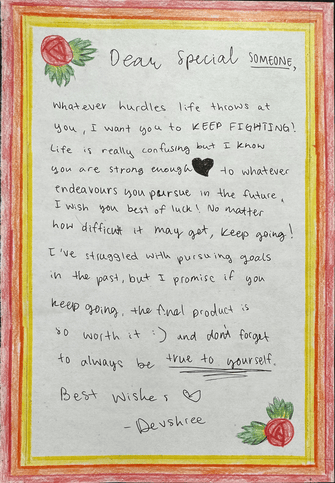 Dear Special SOMEONE,
whatever hurdles life throws at
you, I want you to KEEP FIGHTING!
Life is really confusing but I know
you are strong enough ♥ to whatever
endeavours you pursue in the future,
I wish you best of luck! No matter
how difficult it may get, keep going!
I've struggled with pursuing goals
in the past, but I promise if you
keep going, the final product is
so worth it :) and don't forget
to always be true to yourself.
Best Wishes ♡
-Devshree